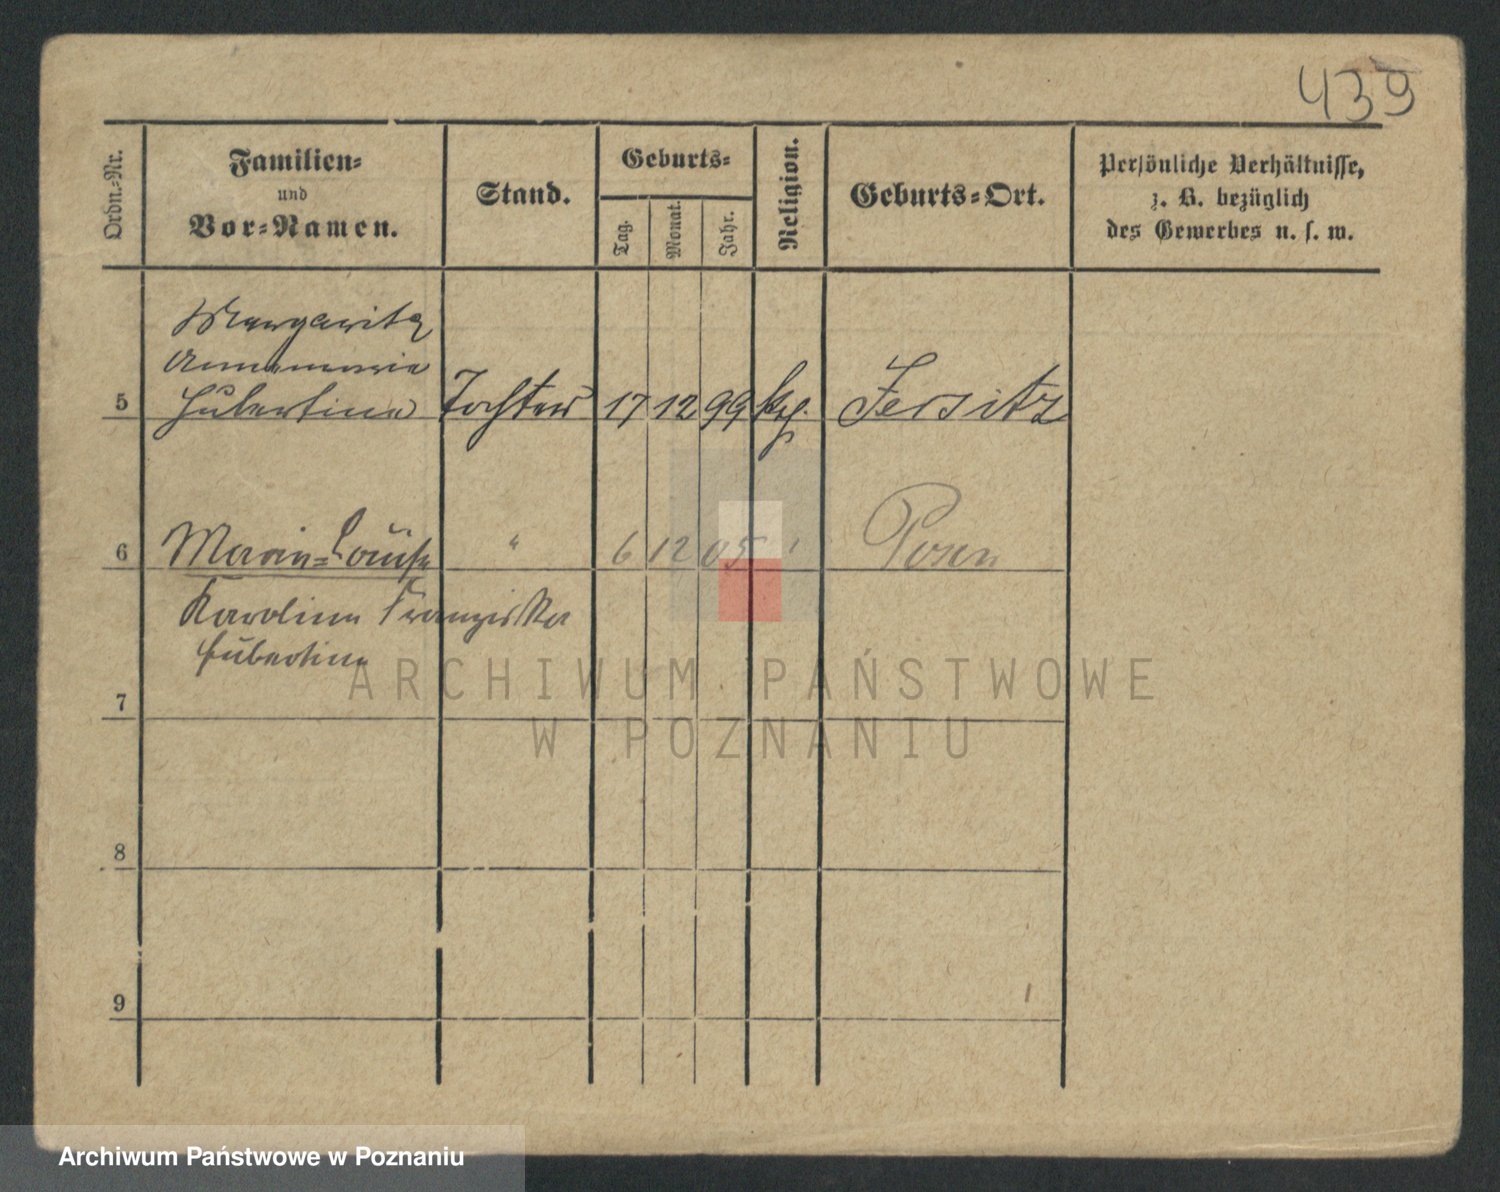 439
Ordn.-Nr.
Familien-
und
Vor-Namen.
Stand.
Geburts-
Tag.
Monat.
Jahr.
Religion.
Geburts-Ort.
Persönliche Verhältnisse,
z. B. bezüglich
des Gewerbes u. s. w.
Margarita
Annamaria
5 Hubertine Tochter 17 12 99 Jersitz
6 Marie-Louise " 6 12 05 Posen
Karoline Franziska
Hubertine
7
8
9
ARCHIWUM PAŃSTWOWE
W POZNANIU
Archiwum Państwowe w Poznaniu